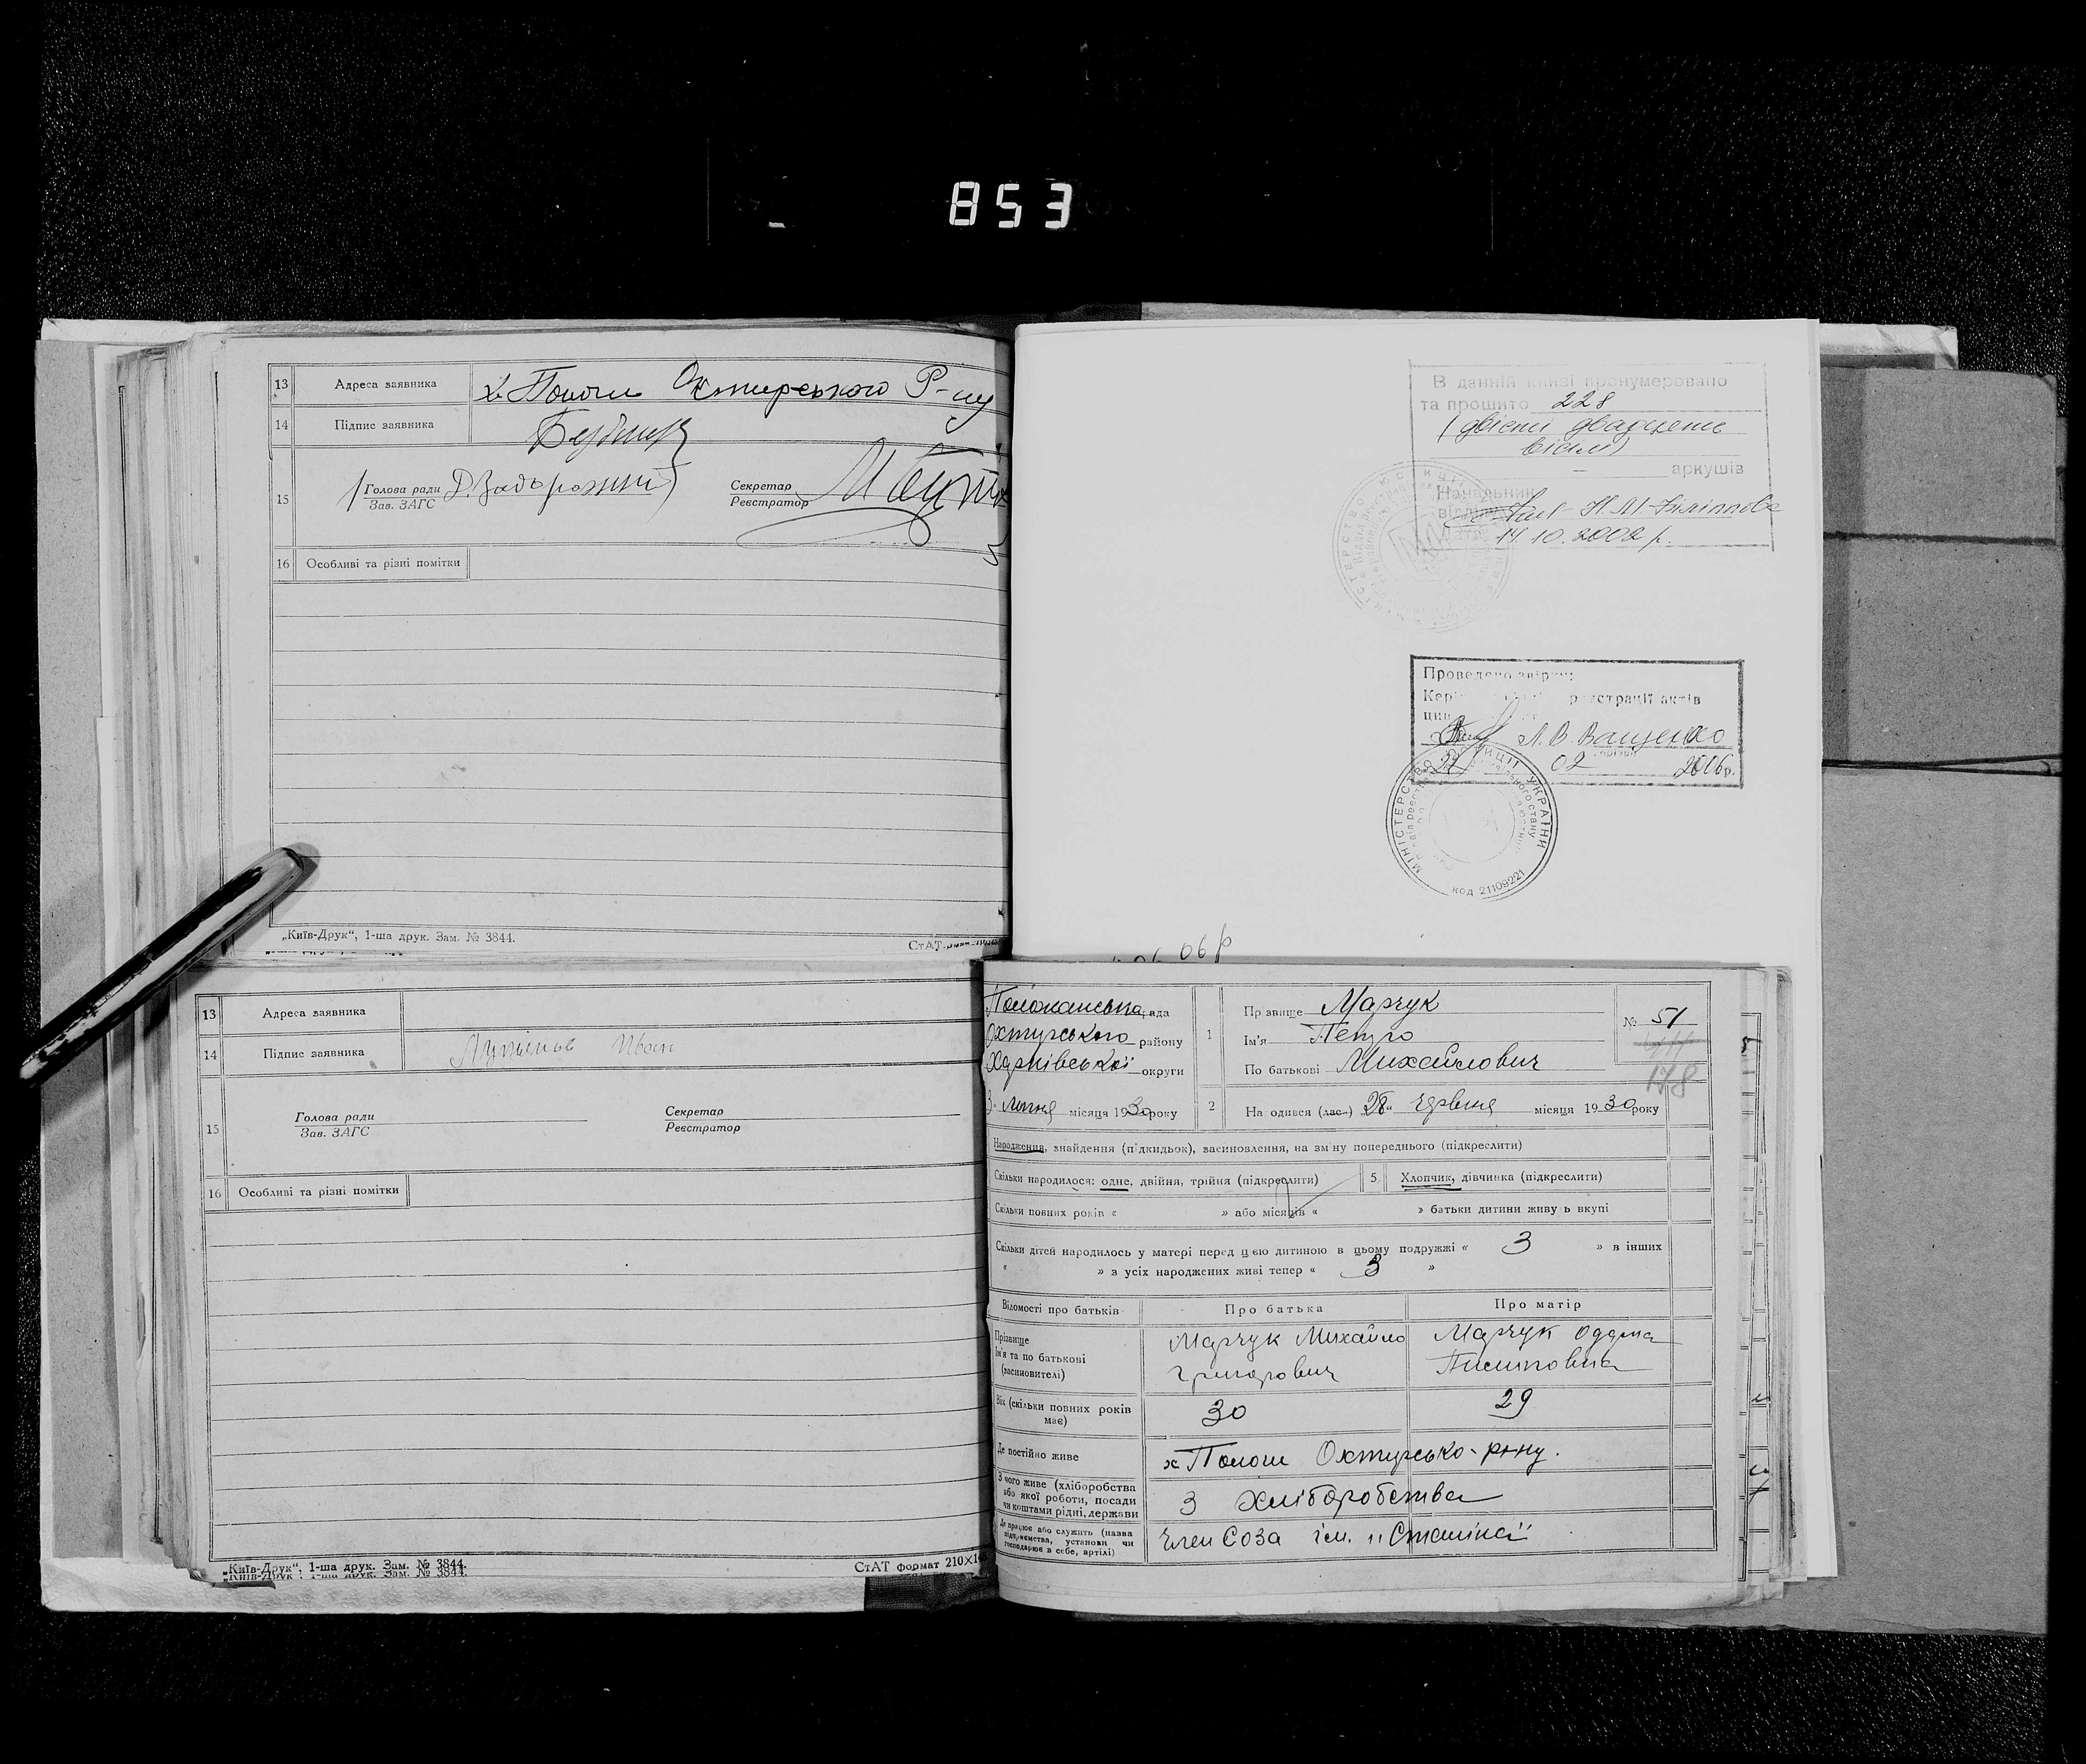 853
13 Адреса заявника х. Полози Охтирського Р-ну
14 Підпис заявника
15 Голова ради Д. Задорожний Секретар
Зав. ЗАГС Реєстратор
16 Особливі та різні помітки
„Київ-Друк“, 1-ша друк. Зам. № 3844. СтАТ
В данній книзі пронумеровано
та прошито 228
(двісті двадцять
вісім)
аркушів
Начальник
відділу Н.М. Філіппова
14.10.2002 р.
Проведено звірку:
реєстрації актів
Л.В. Ващенко
21 02 2006р.
МІНІСТЕРСТВО ЮСТИЦІЇ УКРАЇНИ
код 21109221
06 р
13 Адреса заявника
14 Підпис заявника Іван
15 Голова ради Секретар
Зав. ЗАГС Реєстратор
16 Особливі та різні помітки
„Київ-Друк“, 1-ша друк. Зам. № 3844.
СтАТ формат 210×14
рада
Охтирського району
Харківської округи
3 липня місяця 1930 року
1 Прізвище Марчук
Ім'я Петро
По батькові Михайлович
№ 51
178
2 На одився (лас) „28“ червня місяця 1930 року
Народження, знайдення (підкидьок), васиновлення, на зміну попереднього (підкреслити)
Скільки народилося: одне, двійня, трійня (підкреслити) 5 Хлопчик, дівчинка (підкреслити)
Скільки повних років « » або місяців « » батьки дитини живу ь вкупі
Скільки дітей народилось у матері перед цією дитиною в цьому подружжі « 3 » в інших
« » з усіх народжених живі тепер « 3 »
Відомості про батьків Про батька Про матір
Прізвище Марчук Михайло Марчук Одарка
Ім'я та по батькові
(васиновителі) Григорович Пилиповна
Вік (скільки повних років має) 30 29
Де постійно живе х Полози Охтирсько-р-ну.
З чого живе (хліборобства
або якої роботи, посади З Хліборобства
чи коштами рідні, держави
Де працює або служить (назва
підприємства, установи чи Член СОЗа ім. „Сталіна“
господарює в себе, артілі)